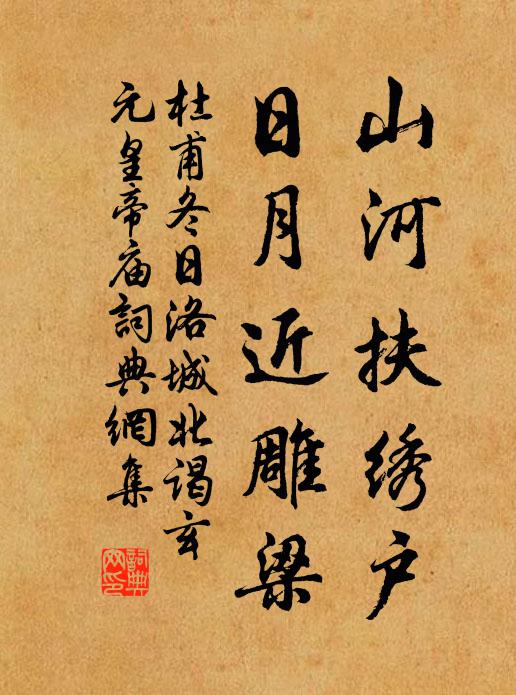 山河扶绣户
日月近雕梁
杜甫冬日洛城北谒玄
元皇帝庙詞典網集
詞典网印